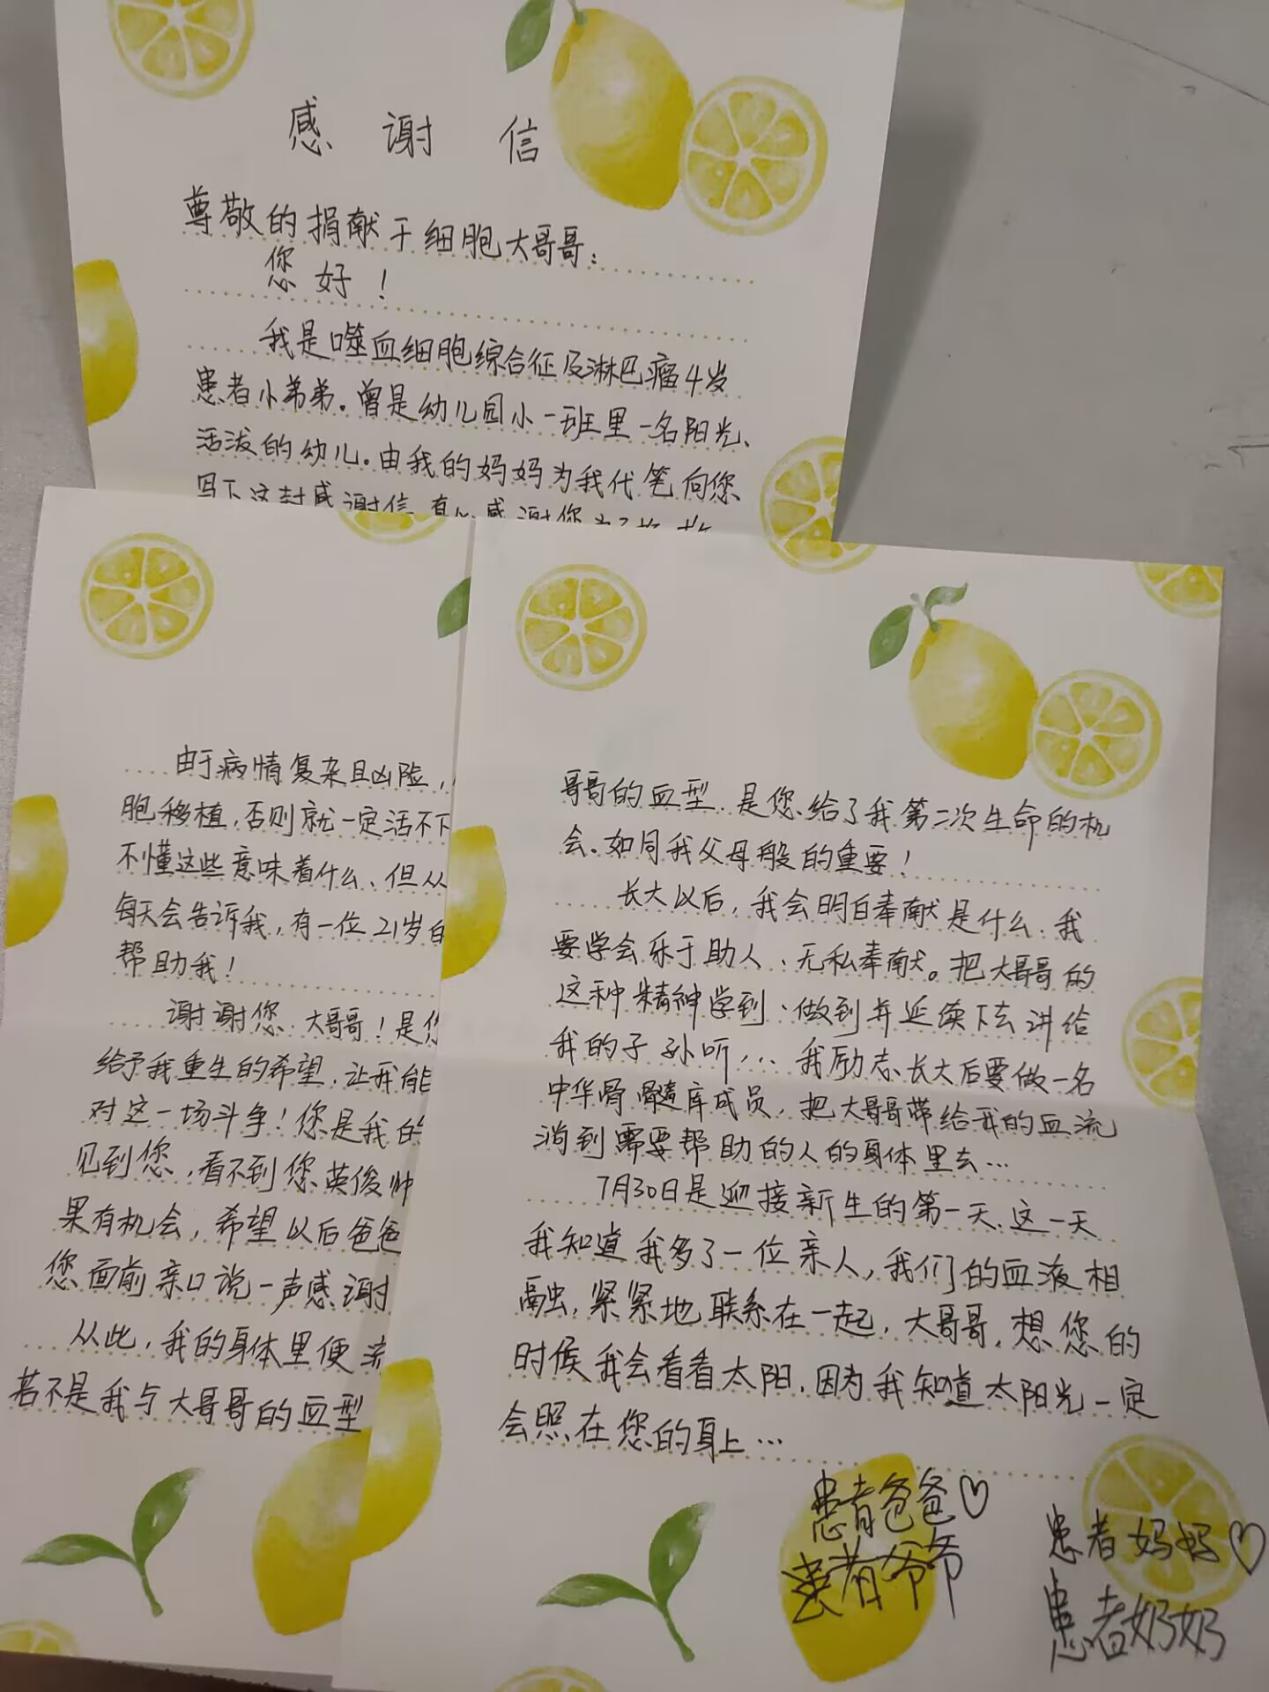 感谢信
尊敬的捐献干细胞大哥哥：
您好！
我是噬血细胞综合征及淋巴瘤4岁
患者小弟弟。曾是幼儿园小一班里一名阳光、
活泼的幼儿。由我的妈妈为我代笔向您
写下这封感谢信，真心感谢您为了拯救
由于病情复杂且凶险，
胞移植，否则就一定活不下
不懂这些意味着什么，但从
每天会告诉我，有一位21岁的
帮助我！
谢谢您，大哥哥！是您
给予我重生的希望，让我能
对这一场斗争！您是我的
见到您，看不到您英俊帅
果有机会，希望以后爸爸
您面前亲口说一声感谢
从此，我的身体里便流
若不是我与大哥哥的血型
哥哥的血型，是您给了我第二次生命的机
会。如同我父母般的重要！
长大以后，我会明白奉献是什么，我
要学会乐于助人、无私奉献。把大哥哥的
这种精神学到、做到并延续下去讲给
我的子孙听，... 我励志长大后要做一名
中华骨髓库成员，把大哥哥带给我的血流
淌到需要帮助的人的身体里去...
7月30日是迎接新生的第一天，这一天
我知道我多了一位亲人，我们的血液相
融，紧紧地联系在一起，大哥哥，想您的
时候我会看看太阳，因为我知道太阳光一定
会照在您的身上...
患者爸爸♡
患者爷爷
患者妈妈♡
患者奶奶